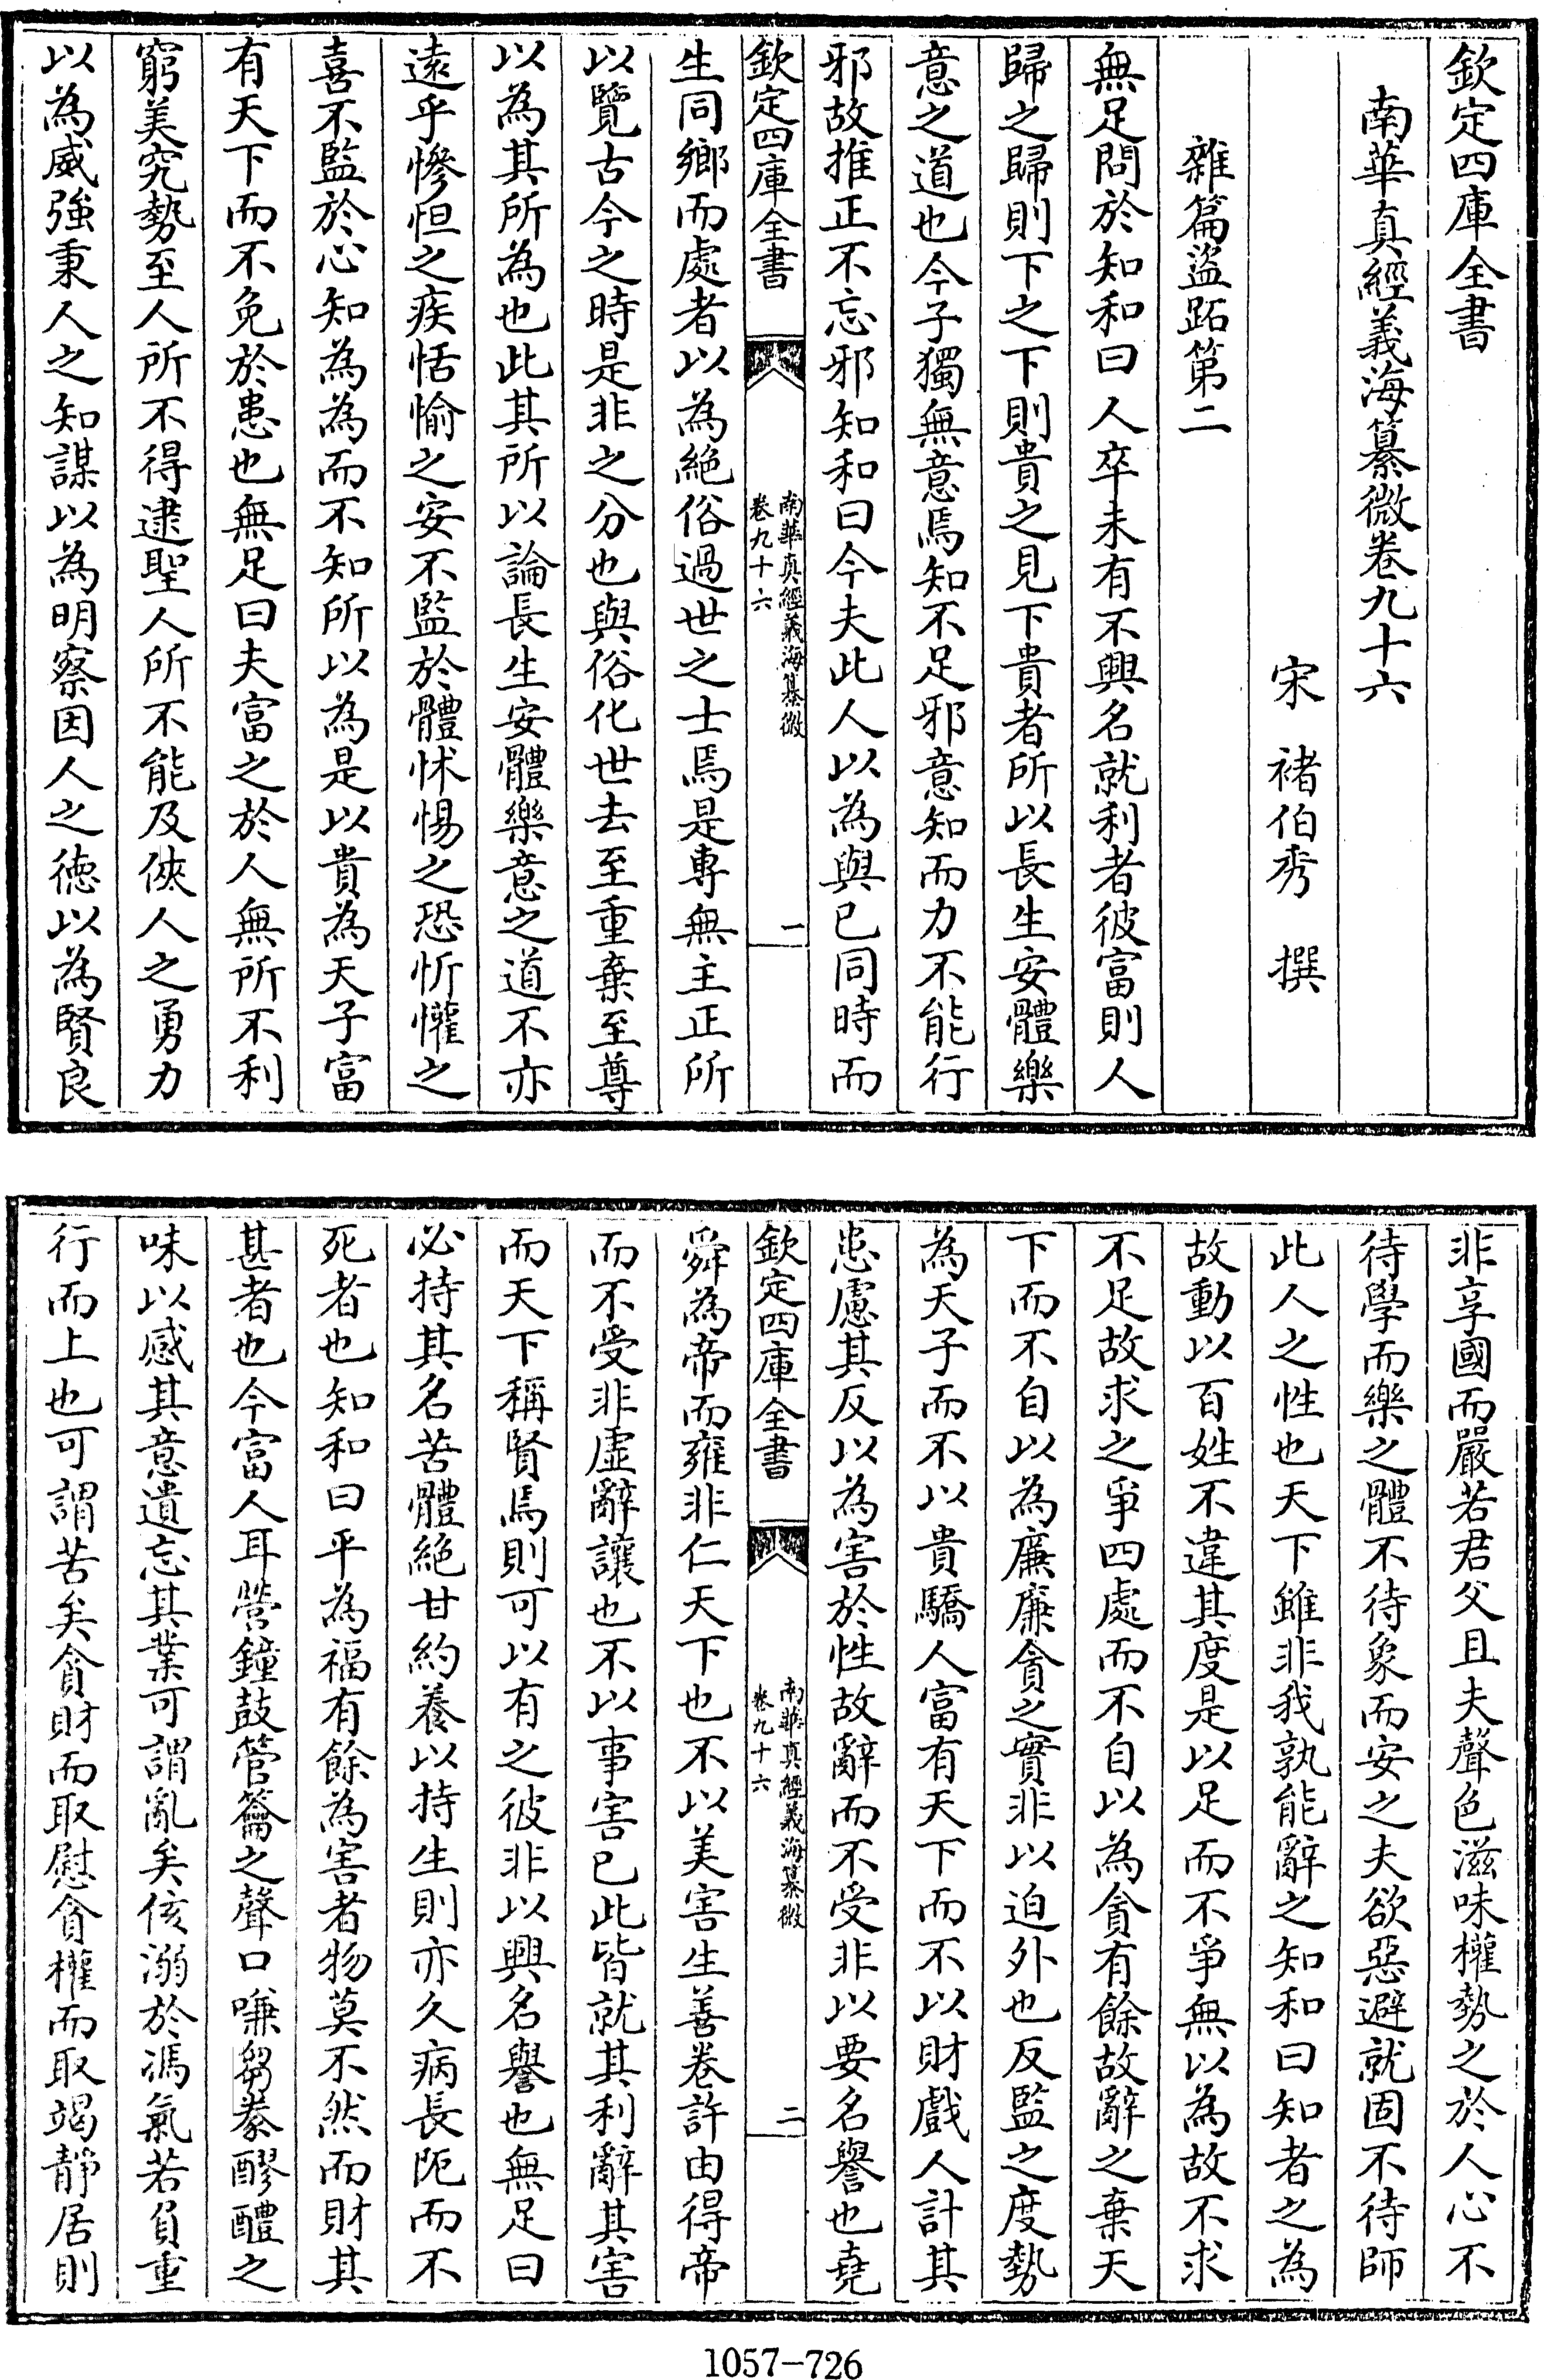 欽定四庫全書
南華真經義海纂微卷九十六
宋　褚伯秀　撰
雜篇盜跖第二
無足問於知和曰人卒未有不興名就利者彼富則人
歸之歸則下之下則貴之見下貴者所以長生安體樂
意之道也今子獨無意焉知不足邪意知而力不能行
邪故推正不忘邪知和曰今夫此人以為與已同時而
欽定四庫全書
南華真經義海纂微
卷九十六
一
生同鄉而處者以為絕俗過世之士焉是專無主正所
以覽古今之時是非之分也與俗化世去至重棄至尊
以為其所為也此其所以論長生安體樂意之道不亦
遠乎慘怛之疾恬愉之安不監於體怵惕之恐忻懽之
喜不監於心知為為而不知所以為是以貴為天子富
有天下而不免於患也無足曰夫富之於人無所不利
窮美究勢至人所不得逮聖人所不能及俠人之勇力
以為威強秉人之知謀以為明察因人之徳以為賢良
非享國而嚴若君父且夫聲色滋味權勢之於人心不
待學而樂之體不待象而安之夫欲惡避就固不待師
此人之性也天下雖非我孰能辭之知和曰知者之為
故動以百姓不違其度是以足而不爭無以為故不求
不足故求之爭四處而不自以為貪有餘故辭之棄天
下而不自以為廉廉貪之實非以迫外也反監之度勢
為天子而不以貴驕人富有天下而不以財戲人計其
患慮其反以為害於性故辭而不受非以要名譽也堯
欽定四庫全書
南華真經義海纂微
卷九十六
二
舜為帝而雍非仁天下也不以美害生善卷許由得帝
而不受非虛辭讓也不以事害已此皆就其利辭其害
而天下稱賢焉則可以有之彼非以興名譽也無足曰
必持其名苦體絕甘約養以持生則亦久病長阨而不
死者也知和曰平為福有餘為害者物莫不然而財其
甚者也今富人耳營鐘鼓管籥之聲口嗛芻豢醪醴之
味以感其意遺忘其業可謂亂矣侅溺於馮氣若負重
行而上也可謂苦矣貪財而取慰貪權而取竭靜居則
1057-726